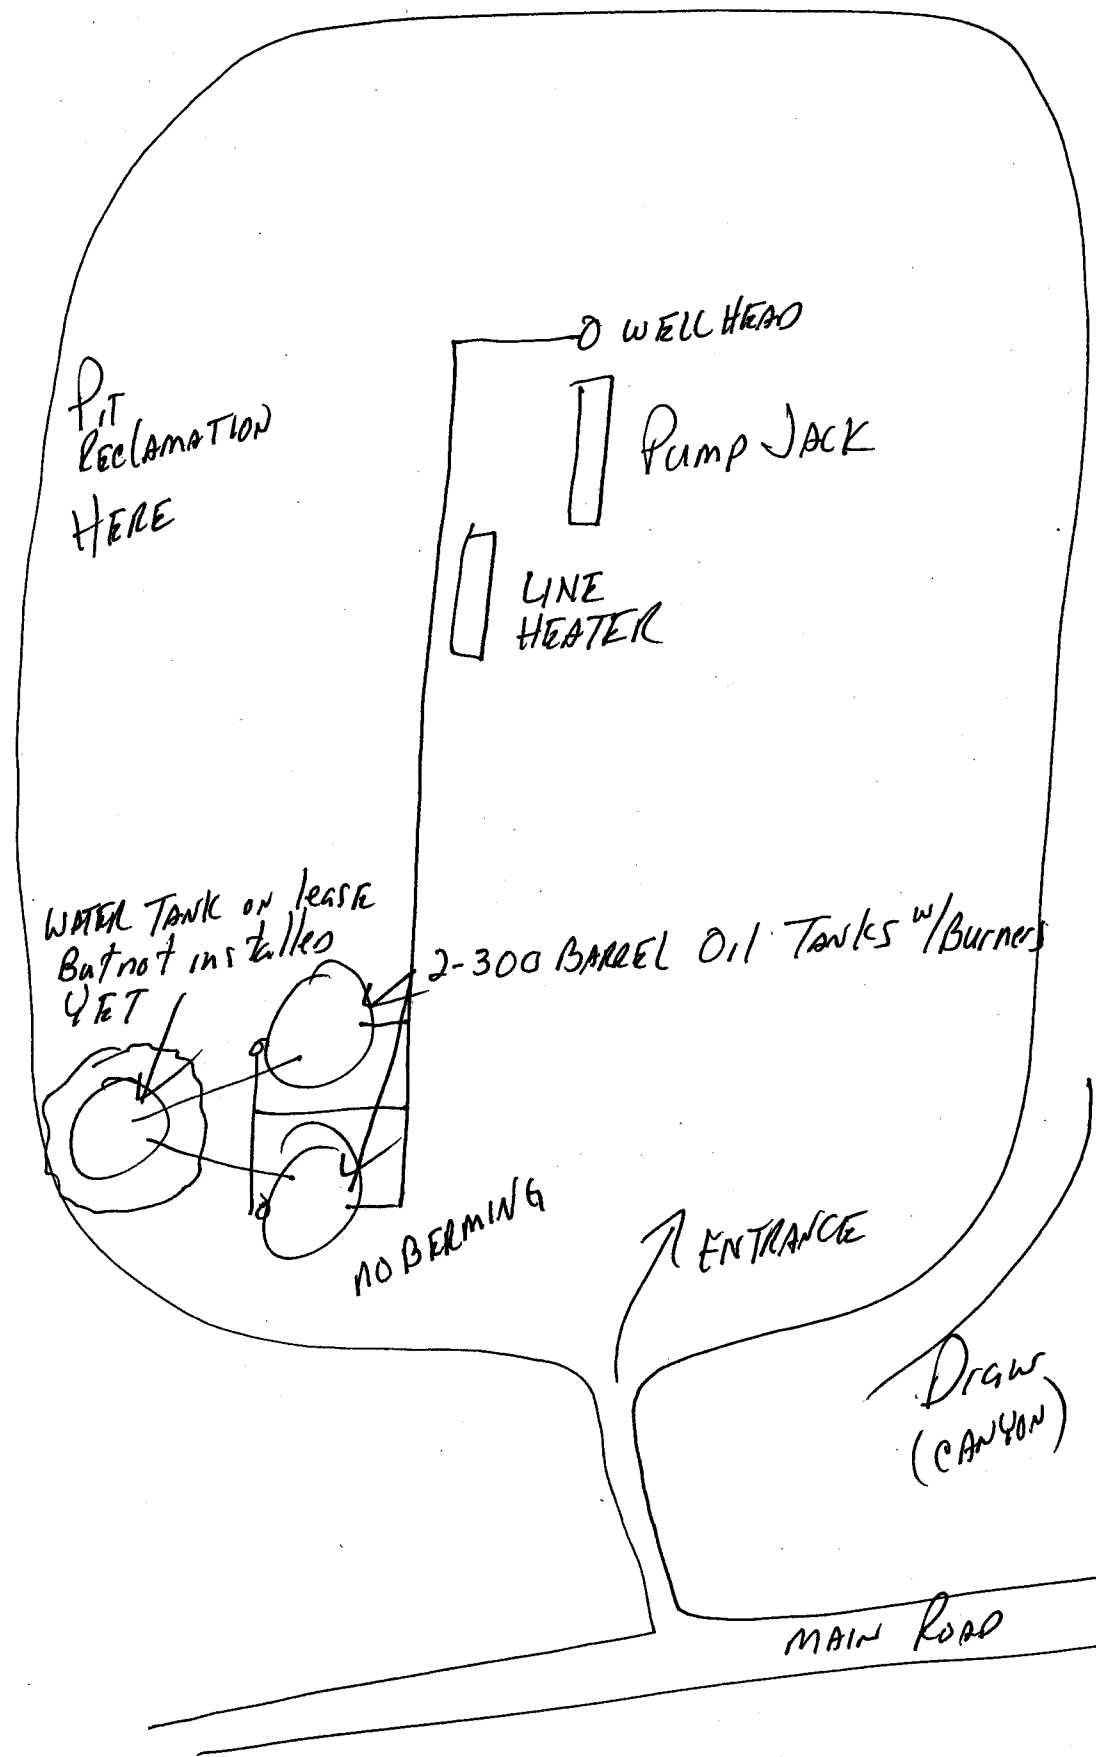 O WELLHEAD
PIT
RECLAMATION
HERE
PUMP JACK
LINE
HEATER
WATER TANK ON lease
But not installed
YET
2-300 BARREL OIL TANKS w/Burners
NO BERMING
ENTRANCE
Draw
(CANYON)
MAIN ROAD